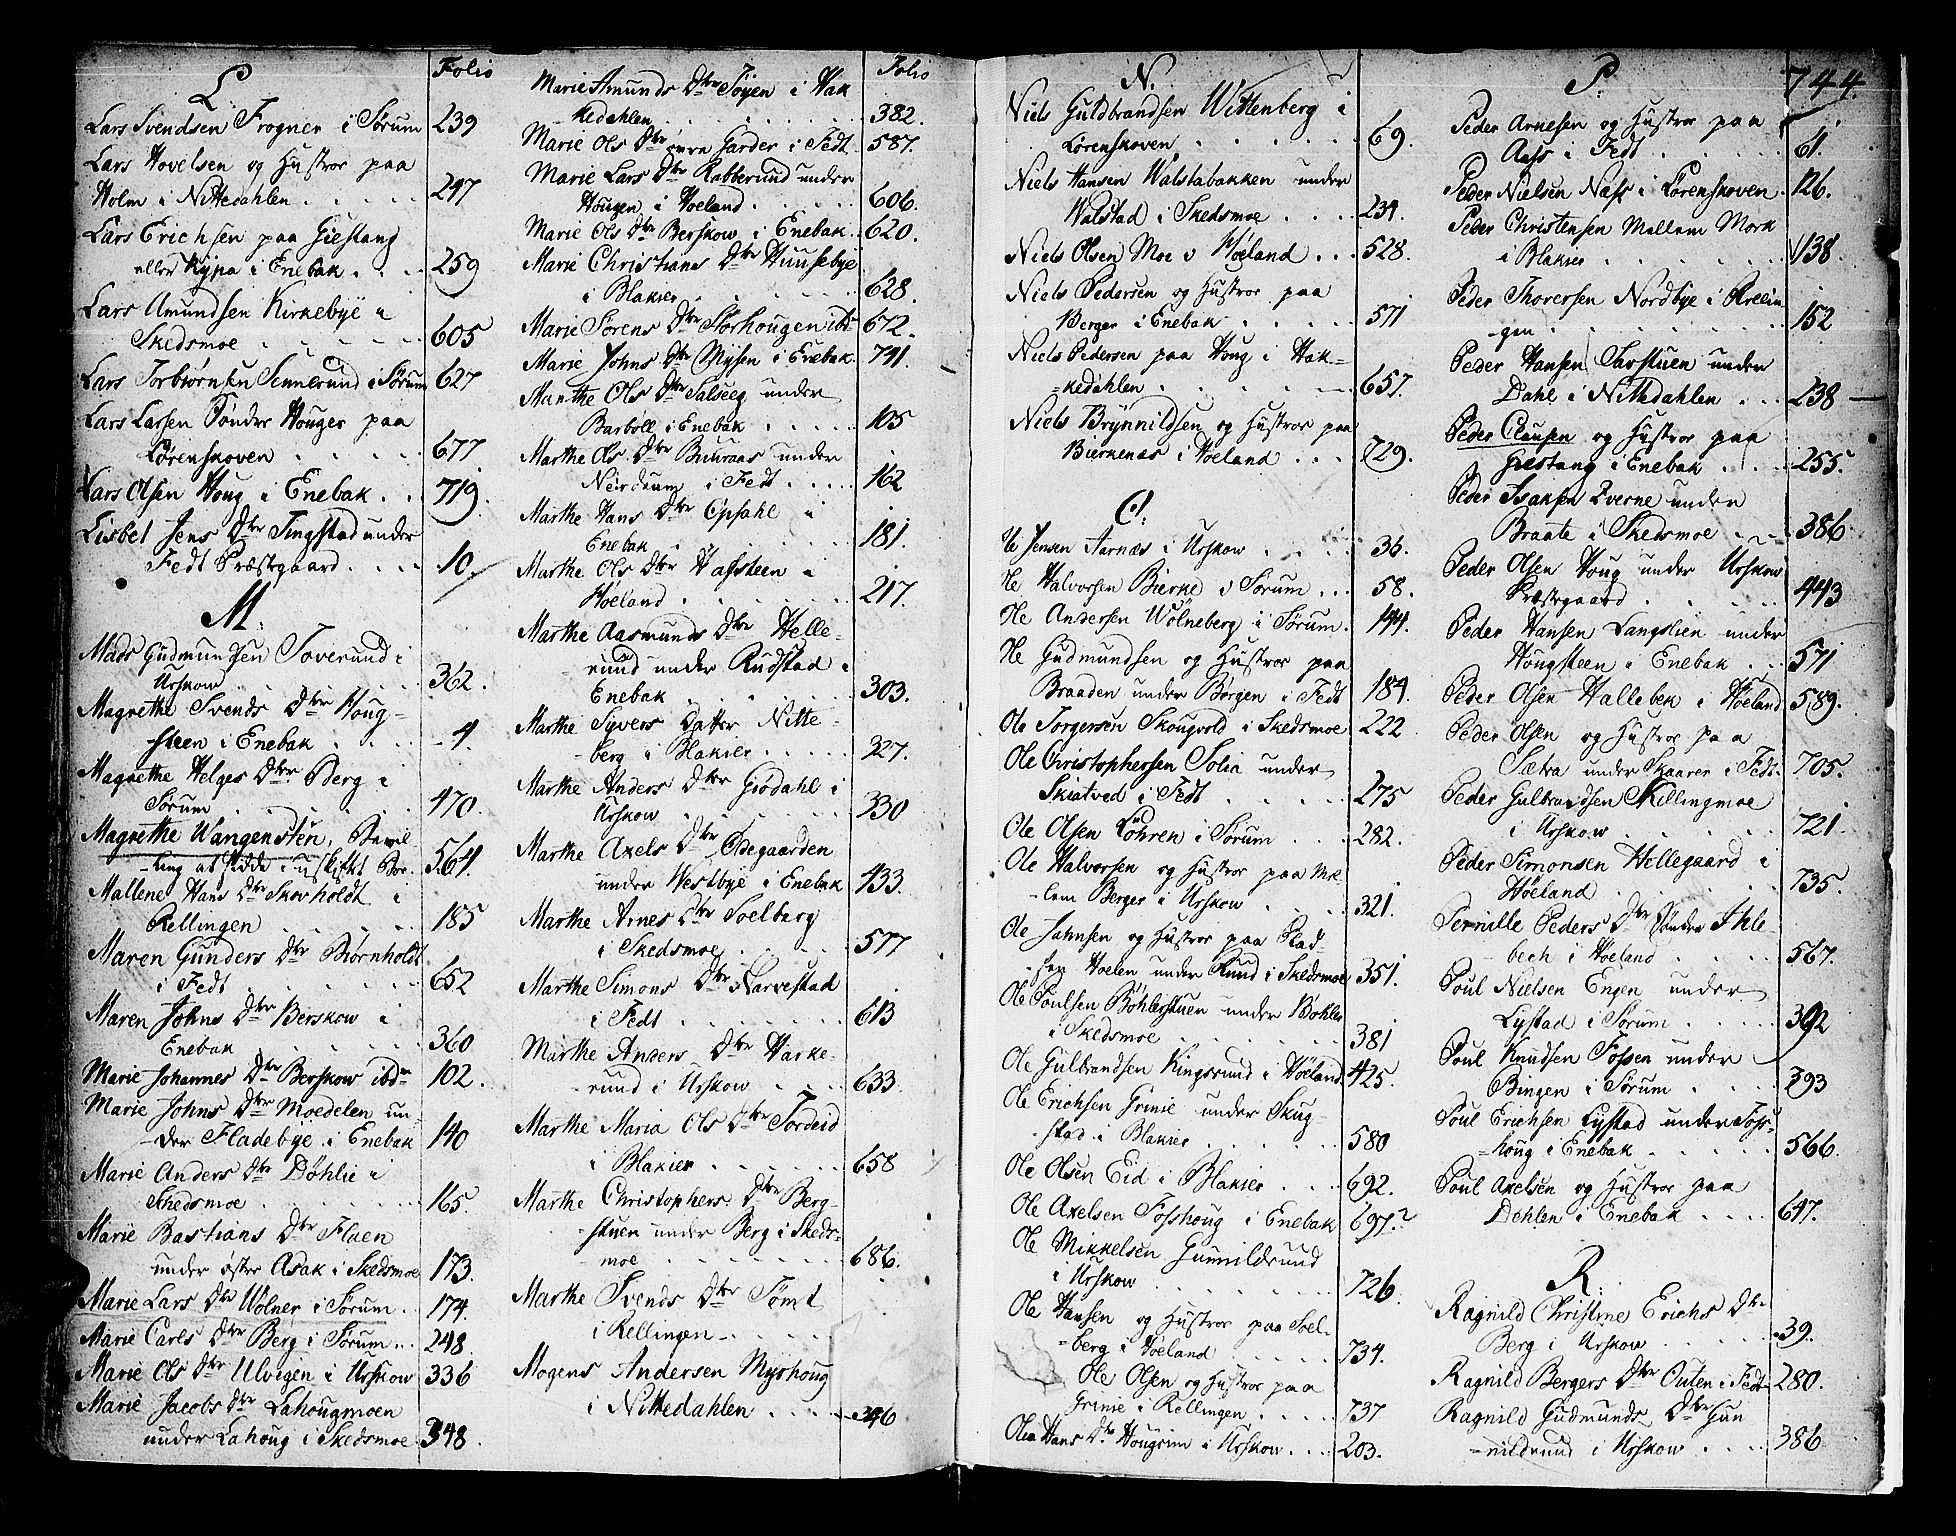 L
Folio
Lars Svendsen Frogner i Sørum 239
Lars Hovelsen og Hustroe paa
Holm i Nittedahlen . . . . . 247
Lars Erichsen paa Giestang
eller Kypa i Enebak . . . . 259
Lars Amundsen Kirkebye i
Skedsmoe . . . . . . 605
Lars Torbiørnsen Sennerud i Sørum 627
Lars Larsen Sønder Houger paa
Lørenskoven . . . . . 677
Lars Olsen Houg i Enebak . . 719.
Lisbet Jens Dtr Tingstad under
Fedt Præstgaard . . . . 10
M.
Mads Gudmundsen Toverund i
Urskow . . . . . . 362.
Magrethe Svends Dtr Houg-
steen i Enebak . . . . 4.
Magrethe Helges Dtr Berg i
Sørum . . . . . . 470.
Magrethe Wangensten,
564.
Mallene Hans Dtr Skovholdt i
Rellingen . . . . . . 185
Maren Gunders Dtr Biørnholdt
i Fedt . . . . . . 652
Maren Johns Dtr Berskow i
Enebak . . . . . . 360
Marie Johannes Dtr Berskow ibdm 102.
Marie Johns Dtr Moedelen un-
der Fladebye i Enebak 140
Marie Anders Dtr Døhlie i
Skedsmoe . . . . . 165.
Marie Bastians Dtr Flaen
under øster Asak i Skedsmoe 173.
Marie Lars Dtr Wølner i Sørum . . 174.
Marie Carls Dtr Berg i Sørum . . 248.
Marie Ols Dtr Ulvigen i Urskow 336
Marie Jacobs dtr Lahougmoen
under Lahoug i Skedsmoe 348.
Folio
Marie Amunds Dtr Tøyen i Hak
-kedahlen . . . . . . 382.
Marie Ols Dtr øvre Garder i Fedt 587.
Marie Lars Dtr Rabberund under
Hougen i Høeland . . . . . 606.
Marie Ols Dtr Berskow i Enebak . . 620.
Marie Christians Dtr Huusebye
i Blakier . . . . . . 628.
Marie Sørens Dtr Sørhougen ibd 672.
Marie Johns Dtr Mysen i Enebak 741.
Marthe Ols Dtr Salseeg under
Barbøll i Enebak . . . . . 105
Marthe Ols Dtr Buuraas under
Neirdrum i Fedt . . . . 162
Marthe Hans Dtr Opsahl i
Enebak . . . . . . 181.
Marthe Ols Dtr Hafsteen i
Hoeland . . . . . . 217.
Marthe Aasmunds Dtr Helle-
rund under Rudstad i
Enebak . . . . . . 303.
Marthe Syvers Datter Nitte-
berg i Blakier . . . . . 327.
Marthe Anders Dtr Giødahl i
Urskow . . . . . . 330
Marthe Axels Dtr Ødegaarden
under Westbye i Enebak 433.
Marthe Arnes Dtr Soelberg
i Skedsmoe . . . . . 577
Marthe Simons Dtr Narvestad
i Fedt . . . . . . 613
Marthe Anders Dtr Harke-
rund i Urskow . . . . 633.
Marthe Maria Ols Dtr Tordeid
i Blakier . . . . . . 658
Marthe Christophers Dtr Berg-
stuen under Berg i Skeds-
moe . . . . . . 686.
Marthe Svends Dtr Tømt
i Rellingen . . . .
Mogens Andersen Myrhoug
i Nittedahlen . . . . . 346
N.
Niels Guldbrandsen Wittenberg i
Lørenskoven . . . . . . 69.
Niels Hansen Walstabakken under
Walstad i Skedsmoe . . . . 234.
Niels Olsen Moe i Høeland . . . 528.
Niels Pedersen og Hustroe paa
Berger i Enebak . . . . . 571
Niels Pedersen paa Houg i Hak-
-kedahlen . . . . . . 657.
Niels Brynnildsen og Hustroe paa
Bierkenæs i Høeland . . . 729.
O.
Ole Jensen Aarnæs i Urskow . . . . 36.
Ole Halvorsen Bierke i Sørum . . . 58.
Ole Andersen Wølneberg i Sørum . 144.
Ole Gudmundsen og Hustroe paa
Braaden under Børgen i Fedt 184.
Ole Torgersen Skougvold i Skedsmoe 222
Ole Christophersen Solia under
Skiatved i Fedt . . . . . 275
Ole Olsen Lohren i Sørum . . . . 282.
Ole Halvorsen og Hustroe paa Mel-
lem Berger i Urskow . . . . 321.
Ole Johnsen og Hustroe paa Stad-
Hoelen under Ruud i Skedsmoe 351.
Ole Poulsen Bøhlerstuen under Bøhler
i Skedsmoe . . . . . . 381
Ole Gulbrandsen Kingsrund i Høeland 425.
Ole Erichsen Grinie under Skug-
-stad i Blakier . . . . . 580
Ole Olsen Eid i Blakier . . . . 692.
Ole Axelsen Fosshoug i Enebak 697.
Ole Mikkelsen Gunnildrund
i Urskow . . . . . . 726.
Ole Hansen og Hustroe paa Soel-
-berg i Høeland . . . . . 734.
Ole Olsen og Hustroe paa
Grinie i Rellingen . . . . 737
Olea Hans Dtr Hougrim i Urskow . . . 203.
P.
744.
Peder Arnesen og Hustroe paa
Aass i Fedt . . . . . 61.
Peder Nielsen Næss i Lørenskoven . 126.
Peder Christensen Mellem Mork
i Blakier . . . . . . 138.
Peder Thorersen Nordbye i Rellin-
-gen . . . . . . 152
Peder Hansen Savstuen under
Dahl i Nittedahlen . . . 238
Peder Clausen og Hustroe paa
Giestang i Enebak . . . . 255.
Peder Isaksen Qverne under
Braate i Skedsmoe . . . 386.
Peder Olsen Houg under Urskow
Præstgaard . . . . . 443
Peder Hansen Langslien under
Hougsteen i Enebak . . . 571
Peder Olsen Hallebek i Høeland 589.
Peder Olsen og Hustroe paa
Sætra under Skaarer i Fedt . 705.
Peder Gulbrandsen Killingmoe
i Urskow . . . . . 721.
Peder Simonsen Hellegaard i
Høeland . . . . . . 735.
Pernille Peders Dtr Sønder Ihle-
bech i Høeland . . . . . 567.
Poul Nielsen Engen under
Lystad i Sørum . . . . . 392
Poul Knudsen Fossen under
Bingen i Sørum . . . . 393
Poul Erichsen Lystad under Foss-
-houg i Enebak . . . . . 566.
Poul Axelsen og Hustroe paa
Dahlen i Enebak . . . . 647.
R.
Ragnild Christine Erichs Dtr
Berg i Urskow . . . . 39.
Ragnild Bergers Dtr Outen i Fedt 280.
Ragnild Gudmunds Dtr Gun
-nildrund i Urskow . . . . 386